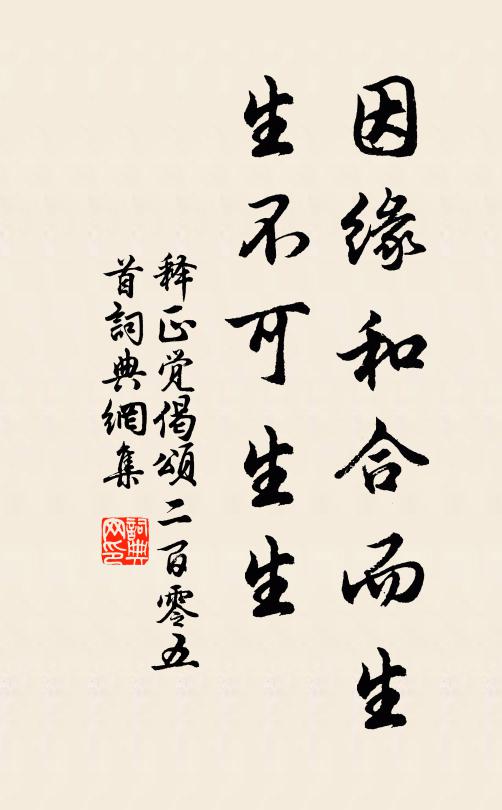 因缘和合而生
生不可生生
释正觉偈頌二百零五
首詞典網集
詞典网印